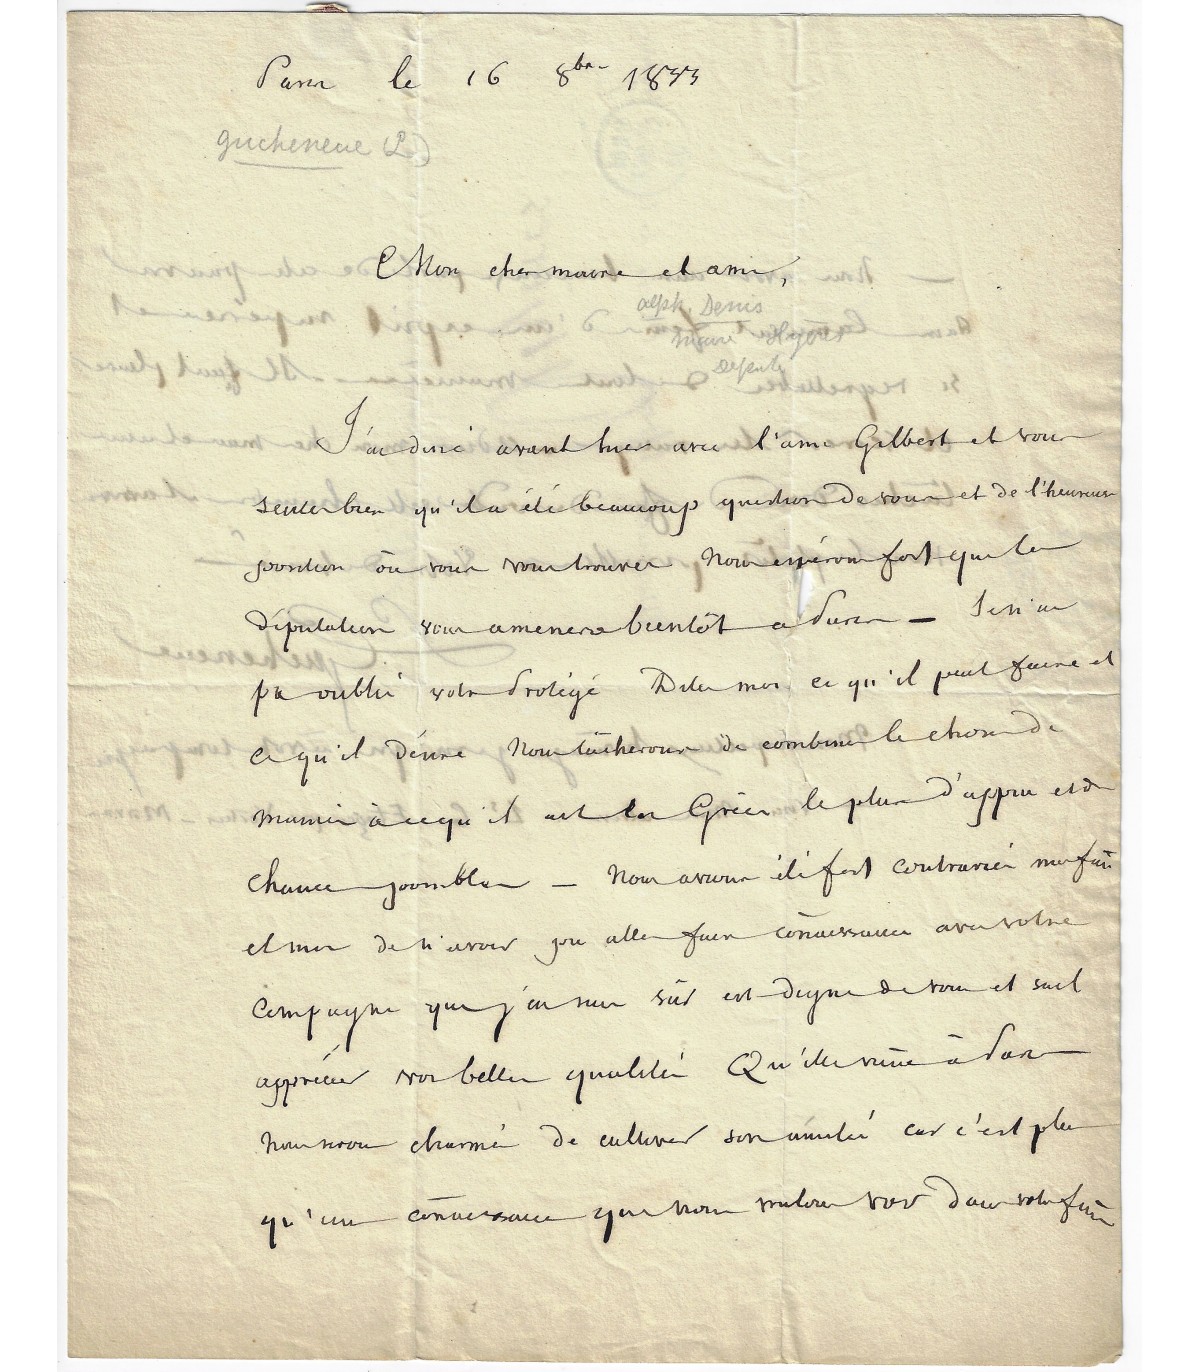 Paris le 16 8bre 1833
Gucheneuc
Mon cher maire et ami,
alph. Denis
maire Hyères
Député
J'ai diné avant hier avec l'ami Gilbert et vous
sentez bien qu'il a été beaucoup question de vous et de l'heureuse
position où vous vous trouvez Nous espérons fort que la
députation vous amenera bientôt a Paris — Je n'ai
pas oublié votre Protégé Dites moi ce qu'il peut faire et
ce qu'il désire Nous tâcherons de combiner les choses de
maniere à ce qu'il ait en Grèce le plus d'appui et de
chances possibles — Nous avons été fort contrariés ma femme
et moi de n'avoir pu aller faire connaissance avec votre
compagne qui j'en suis sûr est digne de vous et sait
apprécier vos belles qualités Qu'elle vienne à Paris
Nous serons charmés de cultiver son amitié car c'est plus
qu'une connaissance que nous voulons voir dans votre femme